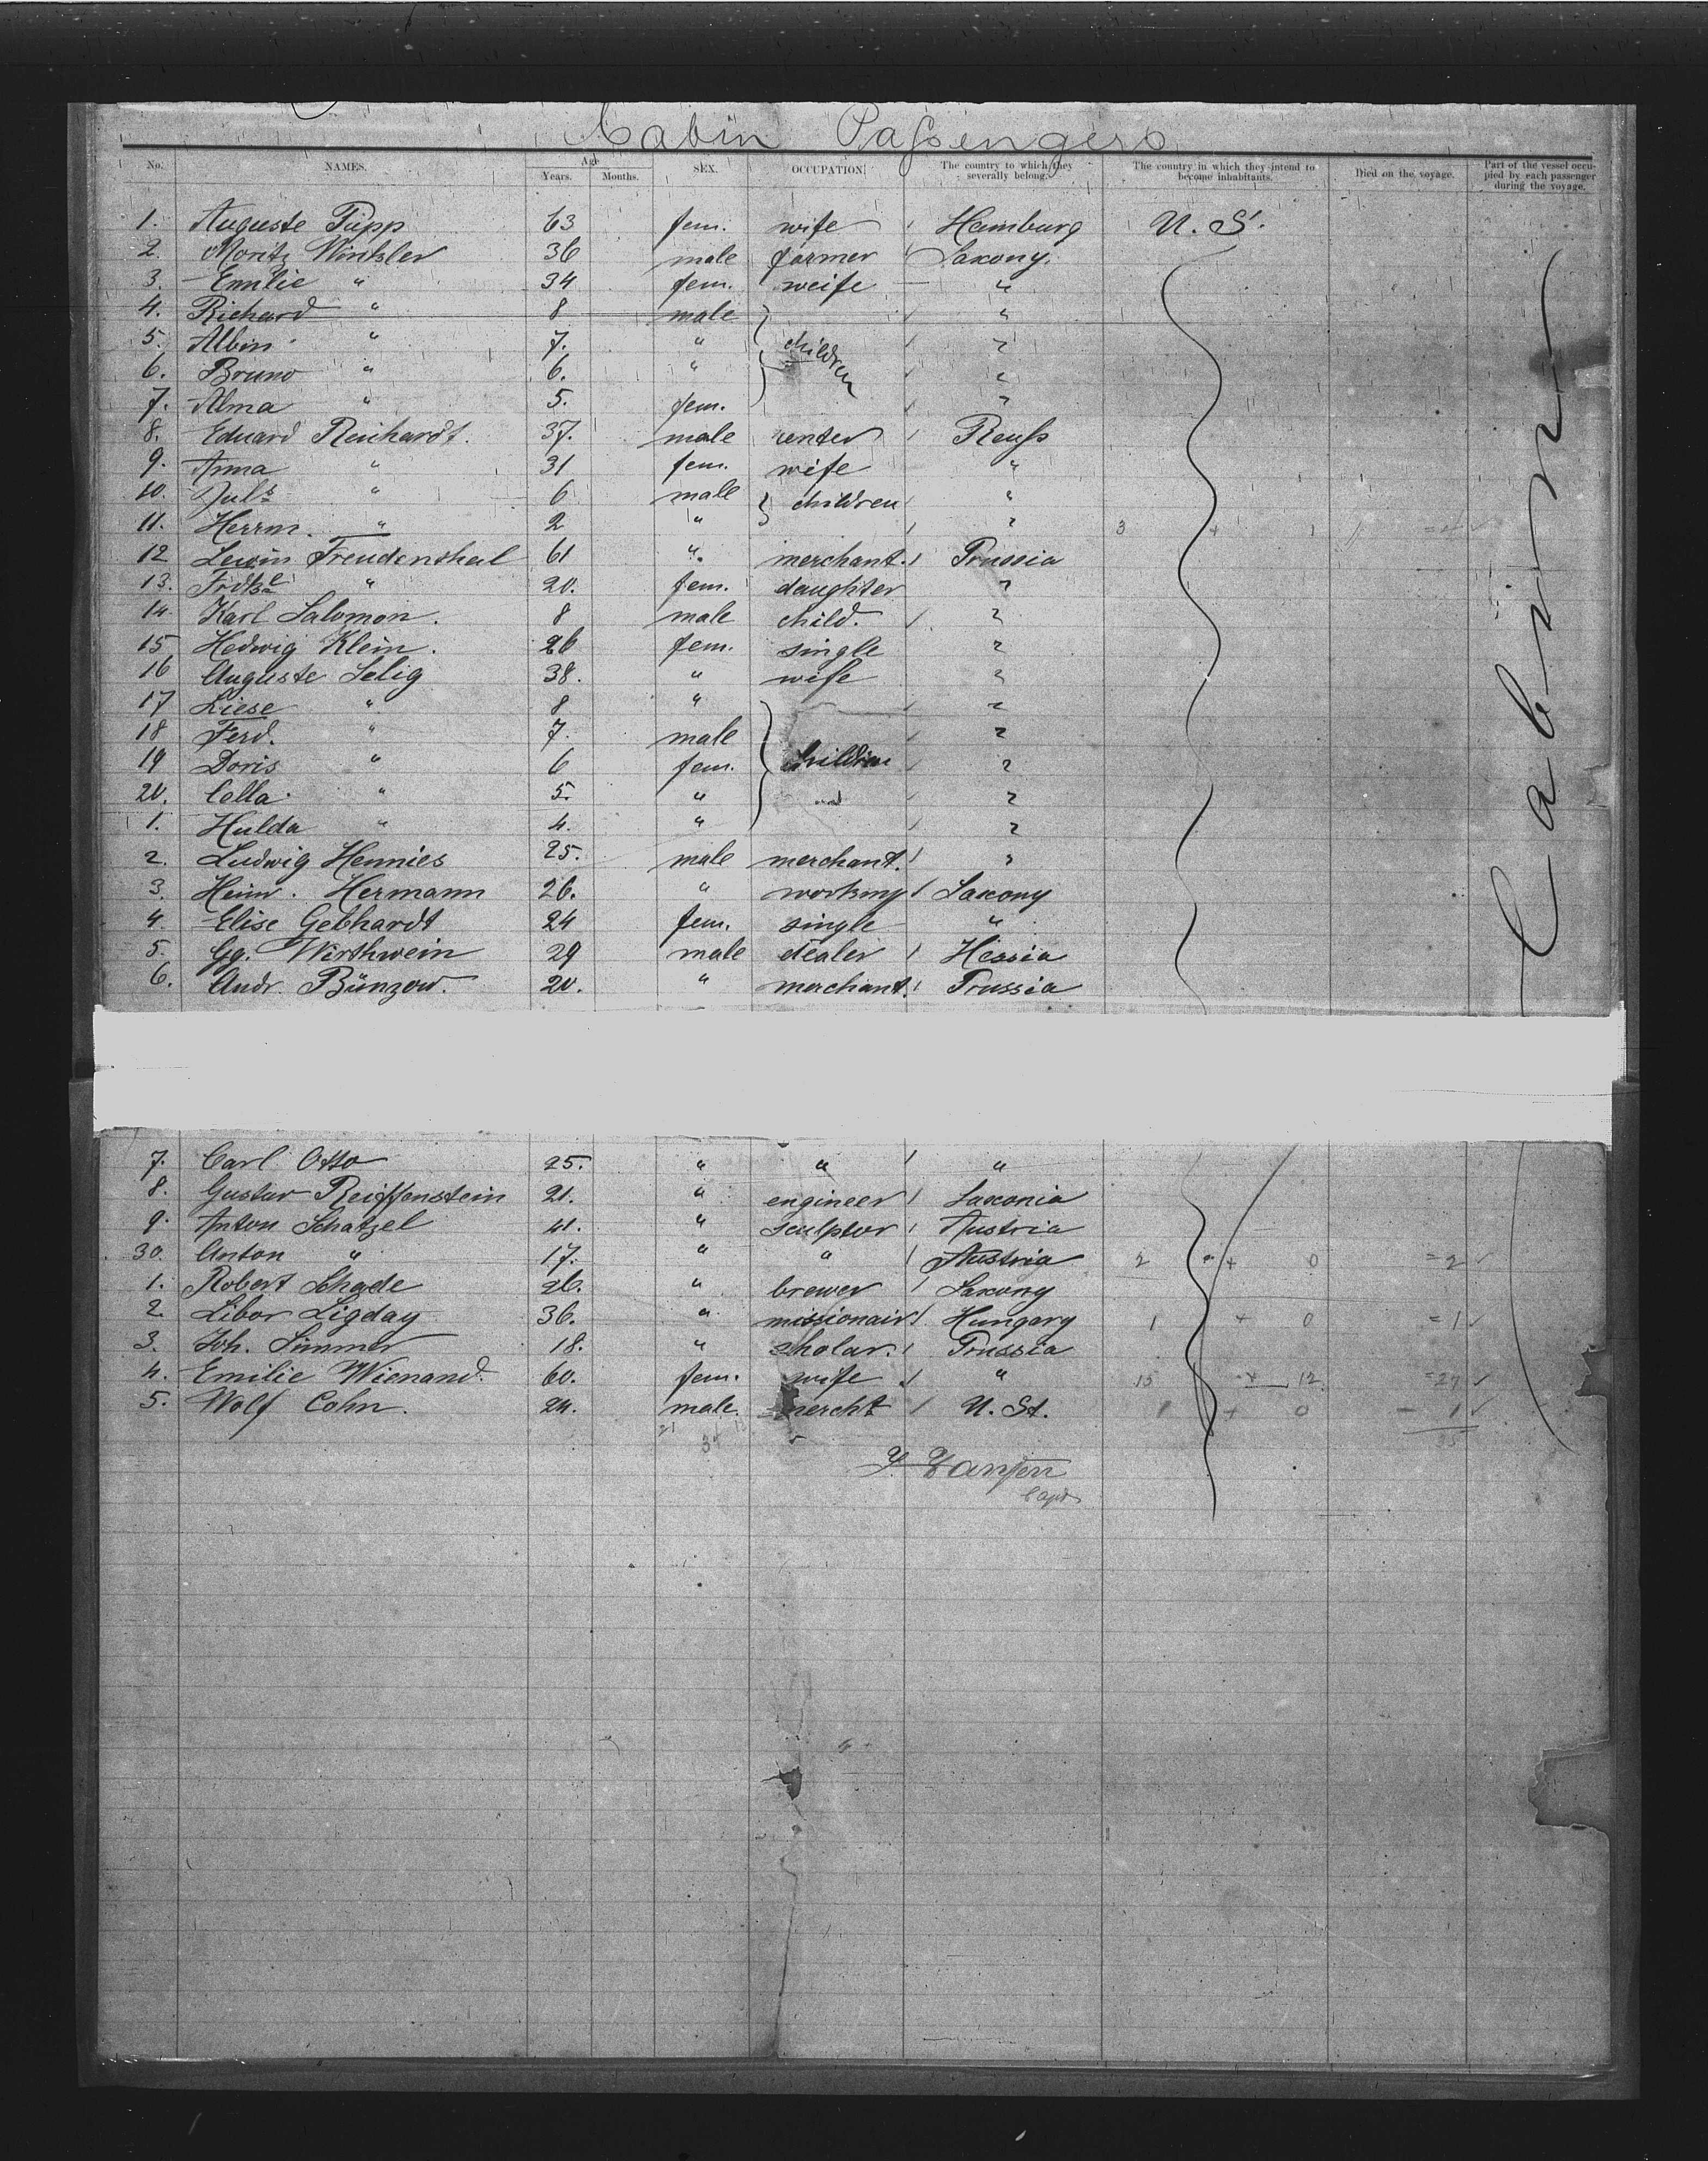 Cabin Passengers
No. NAMES. Age Years. Months. SEX. OCCUPATION. The country to which they severally belong. The country in which they intend to become inhabitants. Died on the voyage. Part of the vessel occupied by each passenger during the voyage.
1. Auguste 63 fem. wife Hamburg U. S.
2. Moritz Winkler 36 male farmer Saxony.
3. Emilie " 34 fem. weife "
4. Richard " 8 male "
5. Albin " 7. " children "
6. Bruno " 6. " "
7. Alma " 5. fem. "
8. Eduard Reinhardt. 37. male renter Reuss
9. Anna " 31 fem. wife "
10. Juls " 6 male children "
11. Herrm. " 2 " "
12 Lewin Freudenthal 61 " merchant. Prussia
13. " 20. fem. daughter "
14 Karl Salomon. 8 male child. "
15 Hedwig Klein. 26 fem. single "
16 Auguste Selig 38. " wife "
17 Liese " 8 " "
18 Ferd. " 7. male "
19 Doris " 6 fem. children "
20. " 5. " "
1. Hulda " 4. " "
2. Ludwig Hennies 25. male merchant. "
3. Heinr. Hermann 26. " working Saxony
4. Elise Gebhardt 24 fem. single "
5. Gg. Wirthwein 29 male dealer Hessia
6. Andr. Bünzow. 20. " merchant. Prussia
Cabin
7. Carl Otto 25. " " "
8. Gustav Reiffenstein 21. " engineer Saxonia
9. Anton Schatzel 41. " sculptor Austria
30. Anton " 17. " " Austria 2 + 0 = 2
1. Robert Schade 26. " brewer Saxony
2. Libor Ligday 36. " missionair Hungary 1 + 0 = 1
3. Joh. Simmer 18. " scholar. Prussia
4. Emilie Wienand. 60. fem. wife " 15 + 12 = 27
5. Wolf Cohn. 24. male. mercht U. St. 1 + 0 1
35
Capt